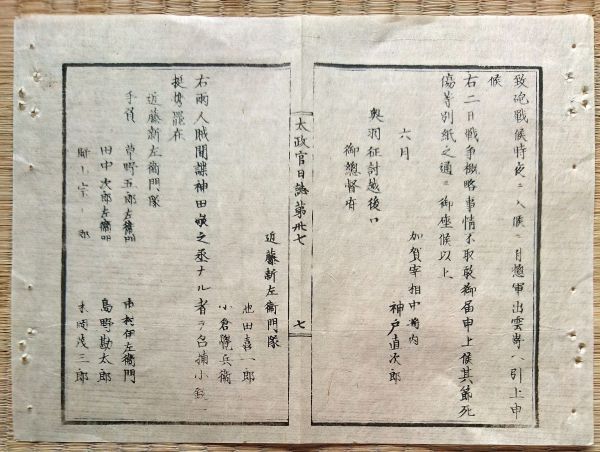 致砲戦候時夜ニ入候ニ付惣軍出雲崎ヘ引上申
候
右二日戦争概略事情不取敢御届申上候其節死
傷等別紙之通ニ御座候以上
六月
加賀宰相中将内
神戸直次郎
奥羽征討越後口
御総督府
太政官日誌第卅七
七
近藤新左衛門隊
池田喜一郎
小倉覺兵衛
右両人賊間諜神田
之丞ナル者ヲ召捕小銃
携罷在
近藤新左衛門隊
手負
草野五郎左衛門
市村伊左衛門
田中次郎左衛門
島野勘太郎
三郎